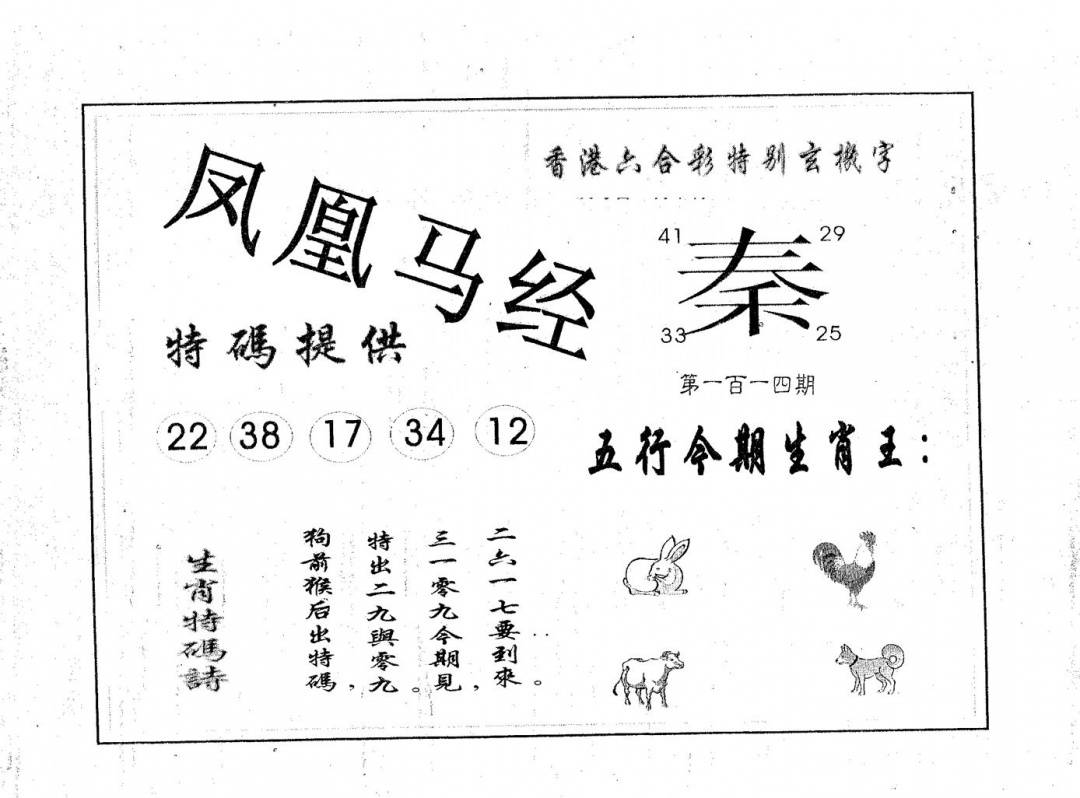 香港六合彩特别玄機字
凤凰马经
41 秦 29
33 25
特碼提供
第一百一四期
22 38 17 34 12
五行今期生肖王：
生肖特碼詩
狗前猴后出特碼，
特出二九與零九。
三一零九今期見，
二六一七要到來。